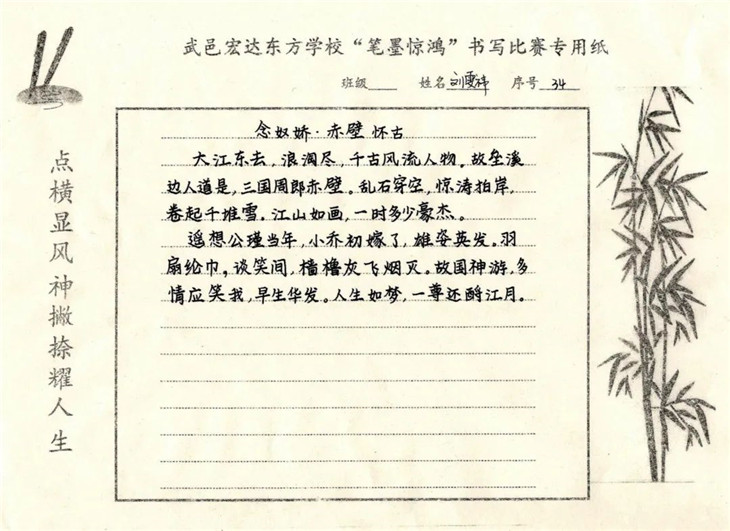 武邑宏达东方学校“笔墨惊鸿”书写比赛专用纸
班级 姓名 刘雯祎 序号 34
点横显风神撇捺耀人生
念奴娇·赤壁 怀古
大江东去，浪淘尽，千古风流人物。故垒溪
边人道是，三国周郎赤壁。乱石穿空，惊涛拍岸，
卷起千堆雪。江山如画，一时多少豪杰。
遥想公瑾当年，小乔初嫁了，雄姿英发。羽
扇纶巾。谈笑间，樯橹灰飞烟灭。故国神游，多
情应笑我，早生华发。人生如梦，一尊还酹江月。